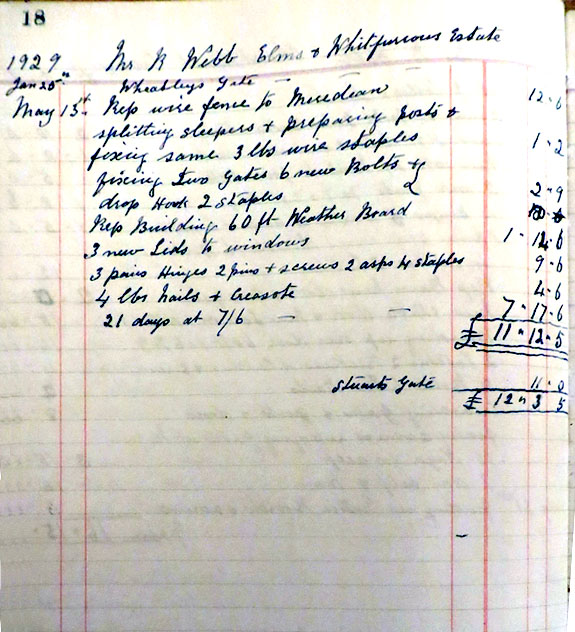 18
1929 Mr R Webb Elms & Whitfurious Estate
Jan 25th Wheatleys Gate — — 12-6
May 13th Rep wire fence to Meredean
splitting sleepers & preparing posts &
fixing same 3 lbs wire staples 1-2
fixing Two Gates 6 new Bolts &
drop Hook 2 staples 2-9
Rep Building 60 ft Weather Board 1-12-6
3 new Lids to windows 9-6
3 pairs Hinges 2 pins & screws 2 asps 4 staples
4 lbs nails & Creasote 4-6
21 days at 7/6 — — 7-17-6
£ 11-12-5
Stuarts Gate 11-0
£ 12-3 5